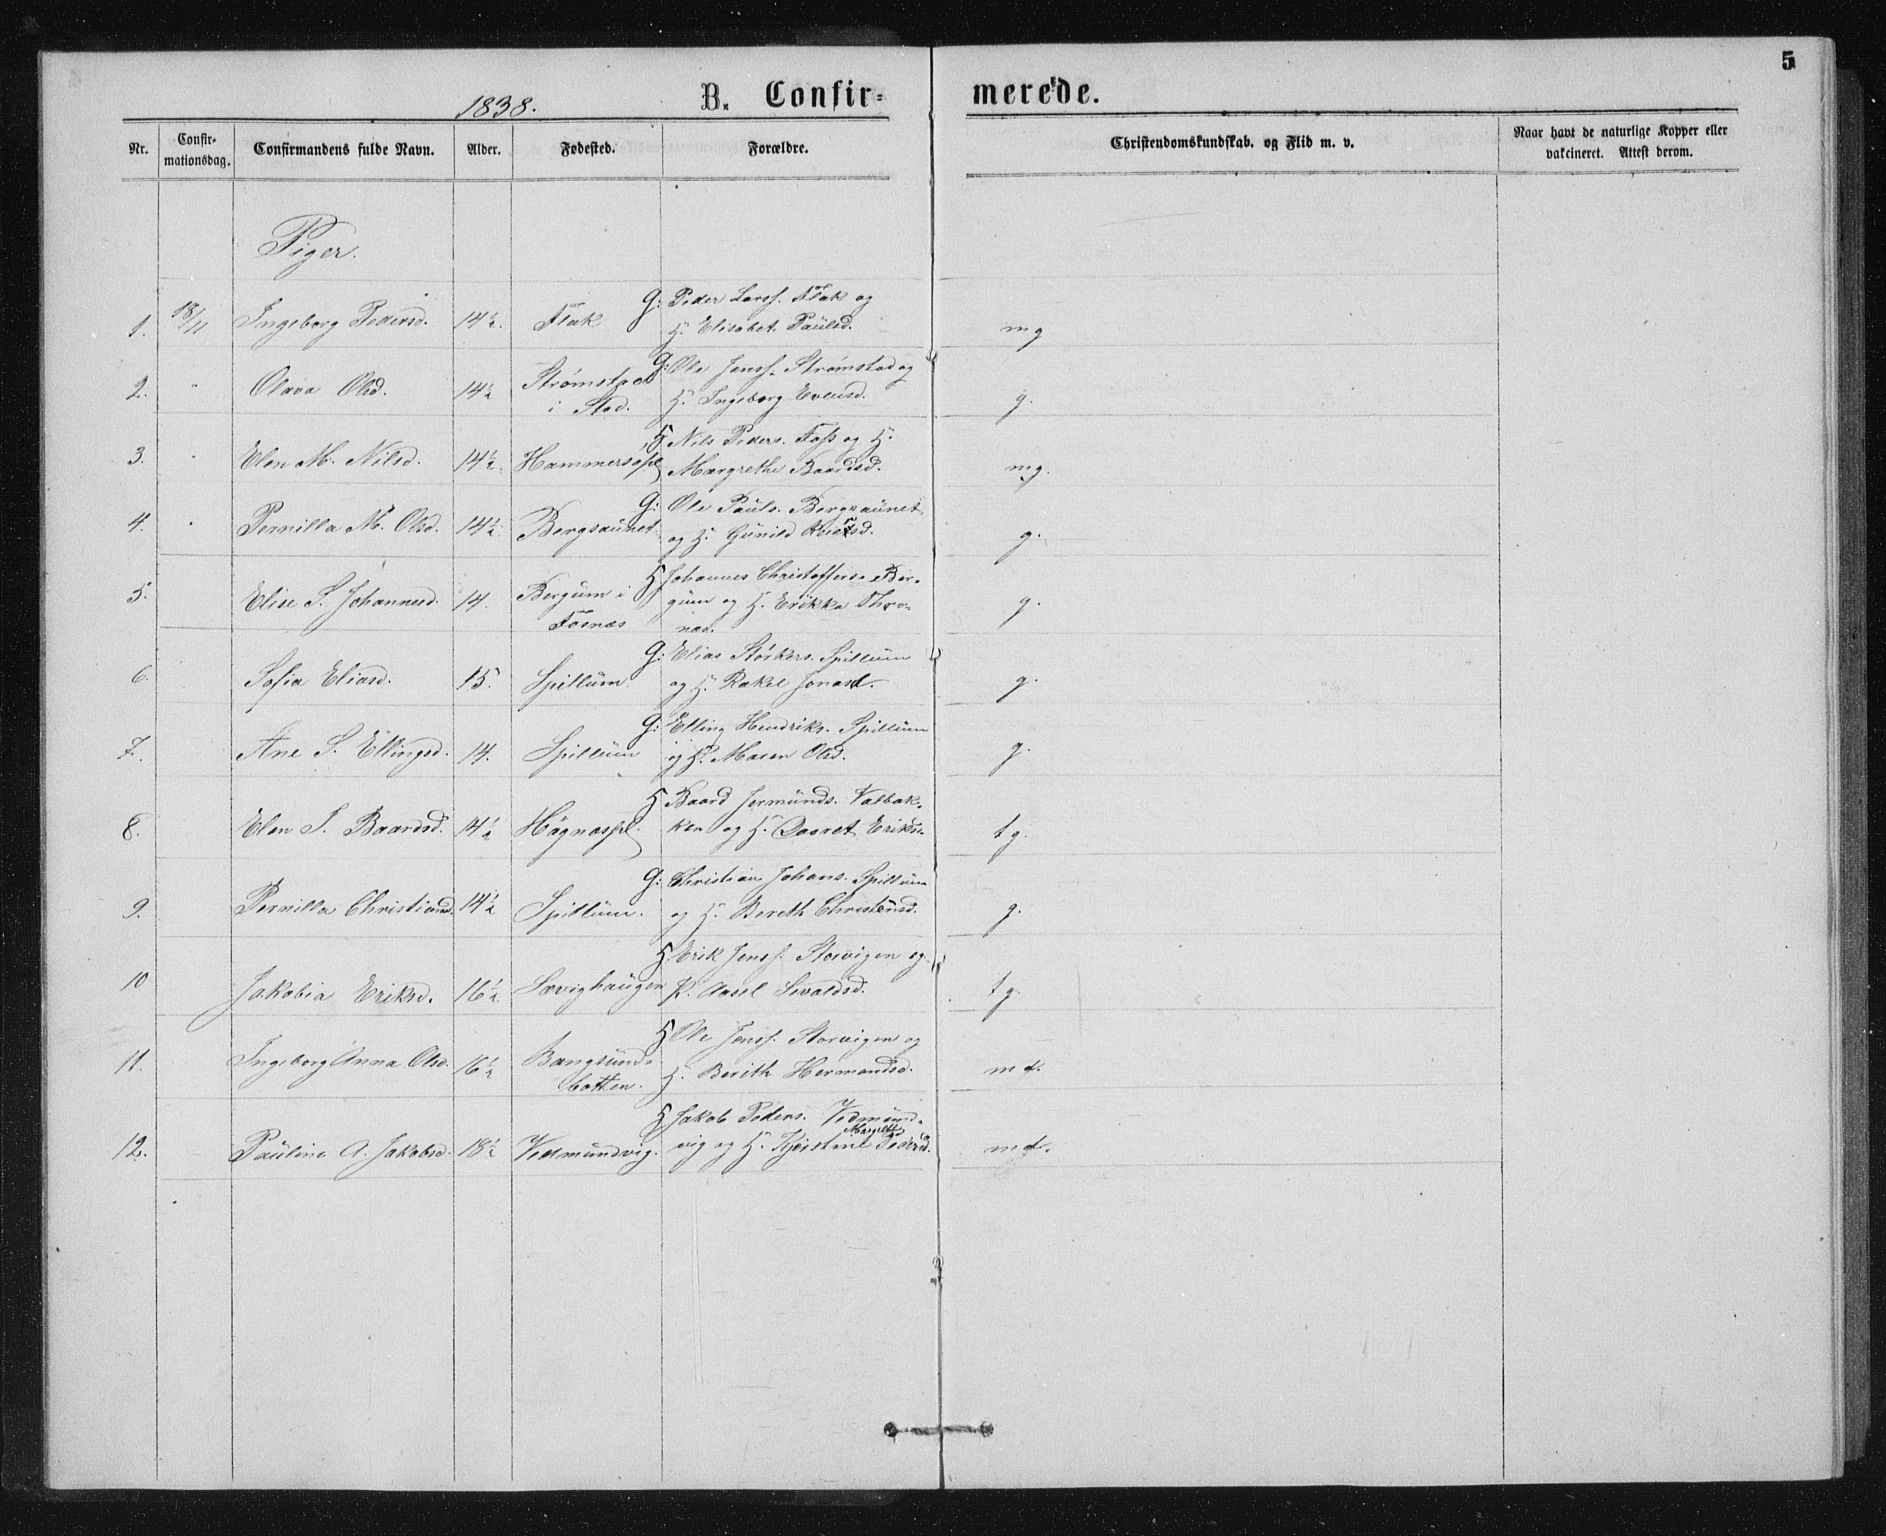 5
1838.
B. Confir-
merede.
Nr.
Confir-
mationsdag.
Confirmandens fulde Navn.
Alder.
Fødested.
Forældre.
Christendomskundskab. og Flid m. v.
Naar havt de naturlige Kopper eller
vakcineret. Attest derom.
Piger.
1. 18/11 Ingeborg Pedersd. 14½. Flak G: Peder Larss. Flak og
H. Elisabet Paulsd. mg
2. " Olava Olsd. 14½ Strømstad G: Ole Jenss. Strømstad og
i Stod. H. Ingeborg Evensd. g.
3. " Elen M. Nilsd. 14½. Hammersøpl H Nils Peders. Foss og H.
Margrethe Baardsd. mg.
4. " Pernilla M. Olsd. 14½. Bergsaunet G: Ole Pauls. Bergsaunet
og H. Gunild g.
5. Elise S. Johannesd. 14. Bergum i H Johannes Christoffers. Ber-
Fosnæs gum og H. Erikka g.
6. Sofia Eliasd. 15. Spillum G: Elias Størkers. Spillum
og H. Rakel Jonasd. g.
7. Ane S. Ellingsd. 14. Spillum G: Elling Hendriks. Spillum
og H. Maren Olsd. g.
8. Elen S. Baardsd. 14½ H Baard Jermunds. Valbak-
ken og H. Dorret Eriksd. tg.
9. Pernilla Christiansd. 14½ Spillum. G: Christian Johans. Spillum
og H. Bereth Christensd. g.
10 Jakobia Eriksd. 16½ Sævighaugen H. Erik Jenss. Storvigen og
K. Aasel Sivaldsd. tg.
11. Ingeborg Anna Olsd. 16½ Bangsunds H Ole Jenss. Storvigen og
botten. H. Berith Hermandsd. md.
12. Pauline A. Jakobsd. 18½ Vedmundvig. H Jakob Peders. Vedmund-
vig og H. Kjerstine Margrethe Pedersd. md.